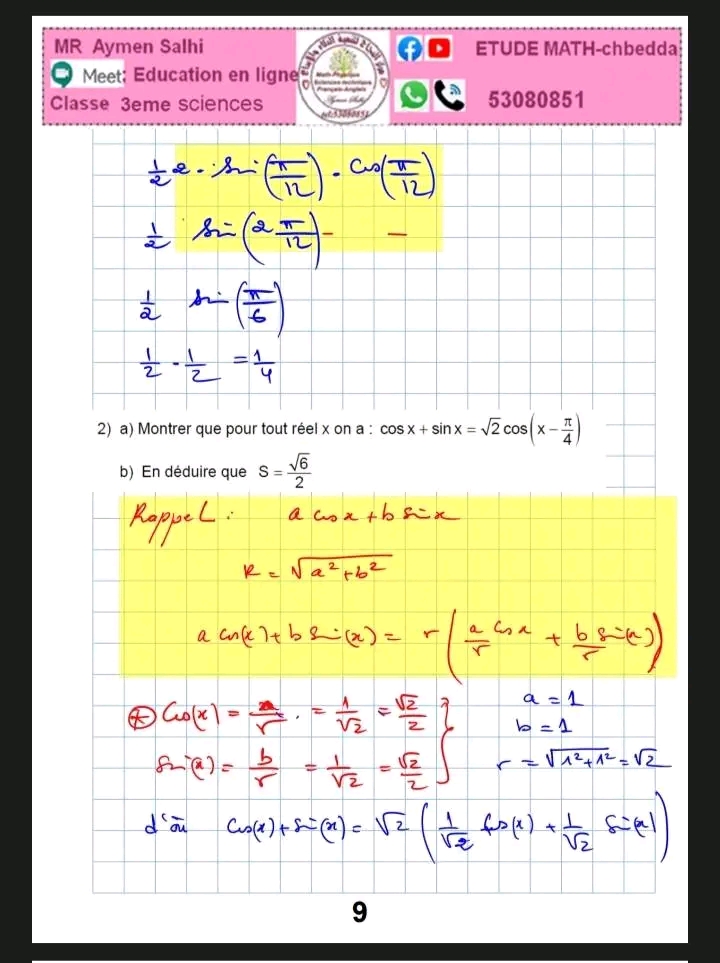 MR Aymen Salhi
ETUDE MATH-chbedda
Meet: Education en ligne
Classe 3eme sciences
53080851
1/2 2 · sin(π/12) · cos(π/12)
1/2 sin(2π/12)
1/2 sin(π/6)
1/2 · 1/2 = 1/4
2) a) Montrer que pour tout réel x on a : cos x + sin x = √2 cos(x − π/4)
b) En déduire que S = √6/2
Rappel : a cos x + b sin x
R = √(a² + b²)
a cos(x) + b sin(x) = r (a/r cos x + b/r sin(x))
⊛ Cos(x) = a/r = 1/√2 = √2/2
a = 1
b = 1
Sin(x) = b/r = 1/√2 = √2/2
r = √(1² + 1²) = √2
d'où Cos(x) + sin(x) = √2 (1/√2 Cos(x) + 1/√2 Sin(x))
9